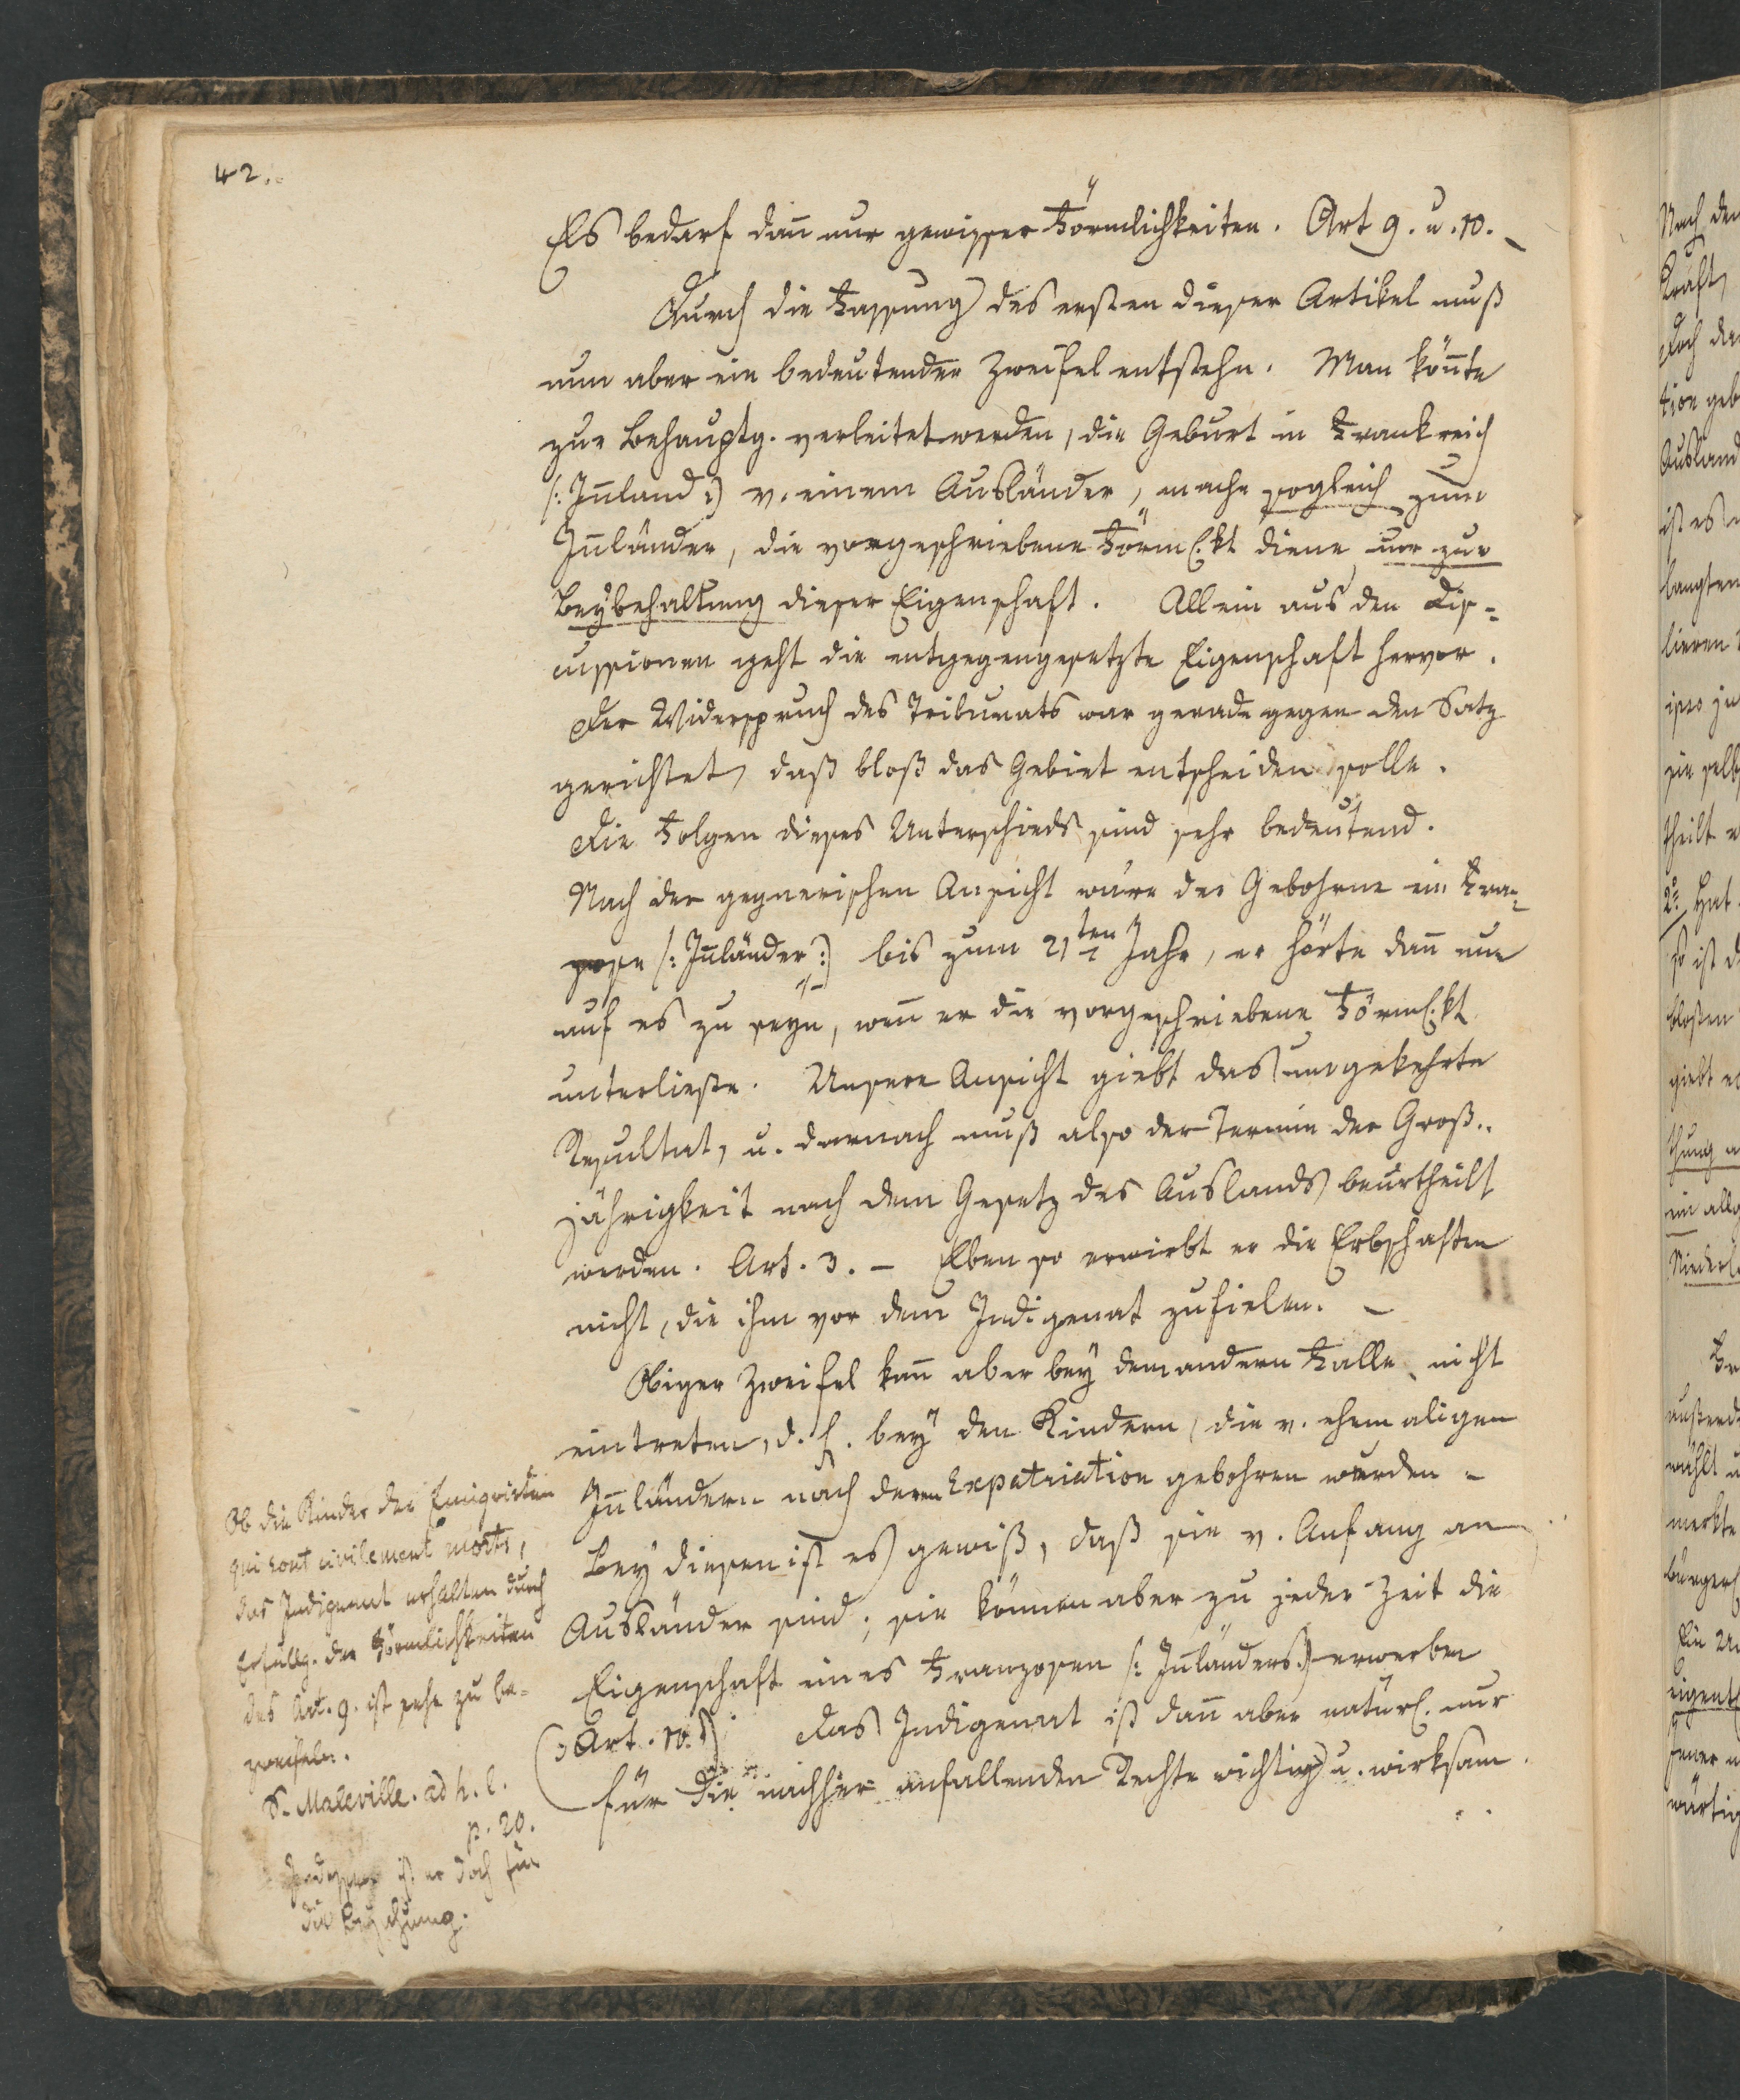 42.
Es bedarf dañ nur gewisser Förmlichkeiten. Art 9. u. 10. –
Durch die Fassung des ersten dieser Artikel muß
nun aber ein bedeutender Zweifel entstehn. Man köñte
zur Behauptg. verleitet werden, die Geburt in Frankreich
/: Iñland :/ v. einem Ausländer, mache sogleich zum
Iñländer, die vorgeschriebene Förmlkt diene nur zur
Beybehaltung dieser Eigenschaft. Allein aus den Dis=
cussionen geht die entgegengesetzte Eigenschaft hervor.
Der Widerspruch des Tribunats war gerade gegen den Satz
gerichtet, daß bloß das Gebiet entscheiden solle.
Die Folgen dieses Unterschieds sind sehr bedeutend.
Nach der gegnerischen Ansicht wäre der Gebohrne ein Fran=
zose /: Iñländer :/ bis zum 21ten Jahr, er hörte dañ nur
auf es zu seyn, weñ er die vorgeschriebene Förmlkt
unterließe. Unsere Ansicht giebt das umgekehrte
Resultat, u. darnach muß also der Termin der Groß=
jährigkeit nach dem Gesetz des Auslands beurtheilt
werden. Art. 3. – Eben so erwirbt er die Erbschaften
nicht, die ihm vor dem Indigenat zufielen. –
Obiger Zweifel kañ aber bey dem andern Falle nicht
eintreten, d. h. bey den Kindern, die v. ehemaligen
Iñländern nach deren Expatriation gebohren wurden –
Bey diesen ist es gewiß, daß sie v. Anfang an
Ausländer sind; sie können aber zu jeder Zeit die
Eigenschaft eines Franzosen /: Iñländers :/ erwerben
(Art. 10.) Das Indigenat ist dañ aber natürl. nur
für die nachher anfallenden Rechte wichtig u. wirksam.
Ob die Kinder der Emigrirten
qui sont civilement morts,
das Indigenat erhalten durch
Erfüllg. der Förmlichkeiten
des Art. 9. ist sehr zu be=
zweifeln.
S. Maleville. ad h. l.
p. 20.
ist er doch für
die